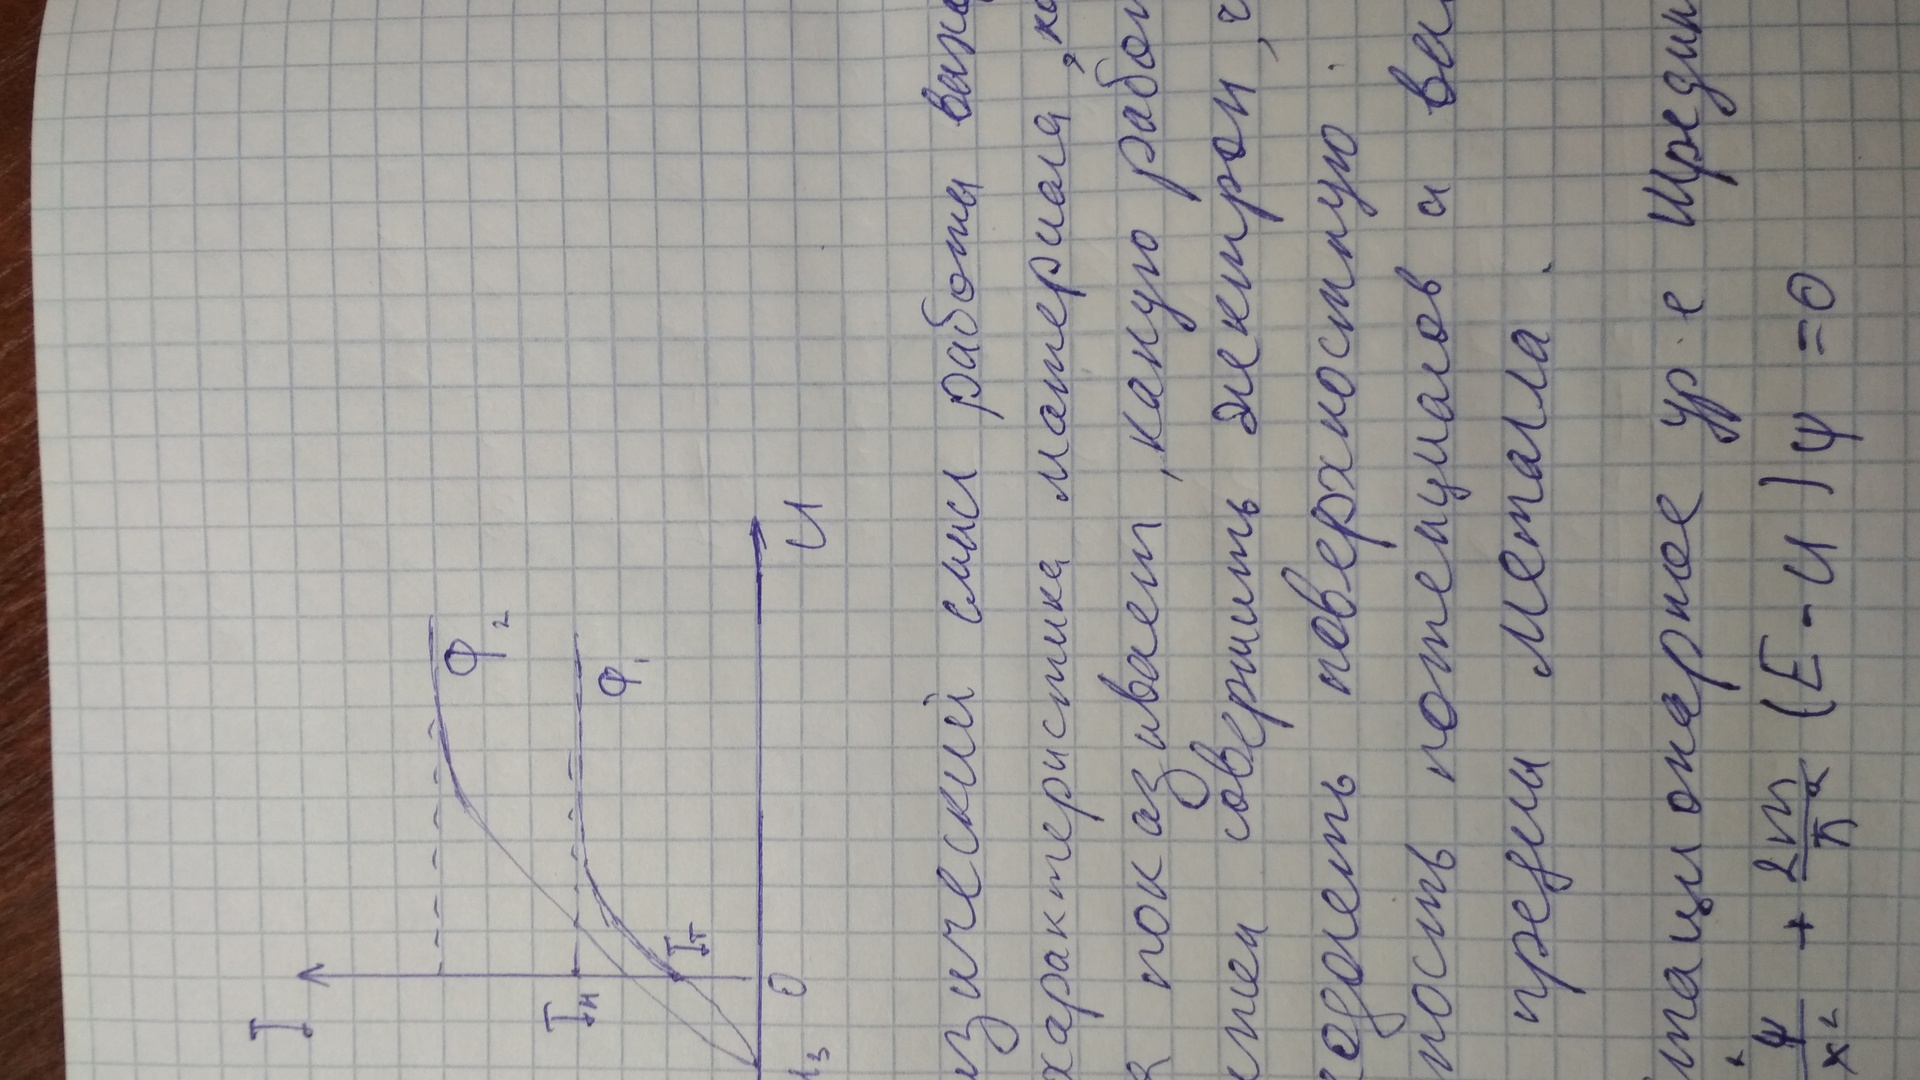 I
Φ₂
Iн
Φ₁
Iт
0
U
зический смысл работы
характеристика материала,
показывает, какую
совершить электрон,
одолеть поверхностную
ность потенциалов и
пределы металла.
тационарное ур-е
+ 2m/ħ² (E-U)ψ=0